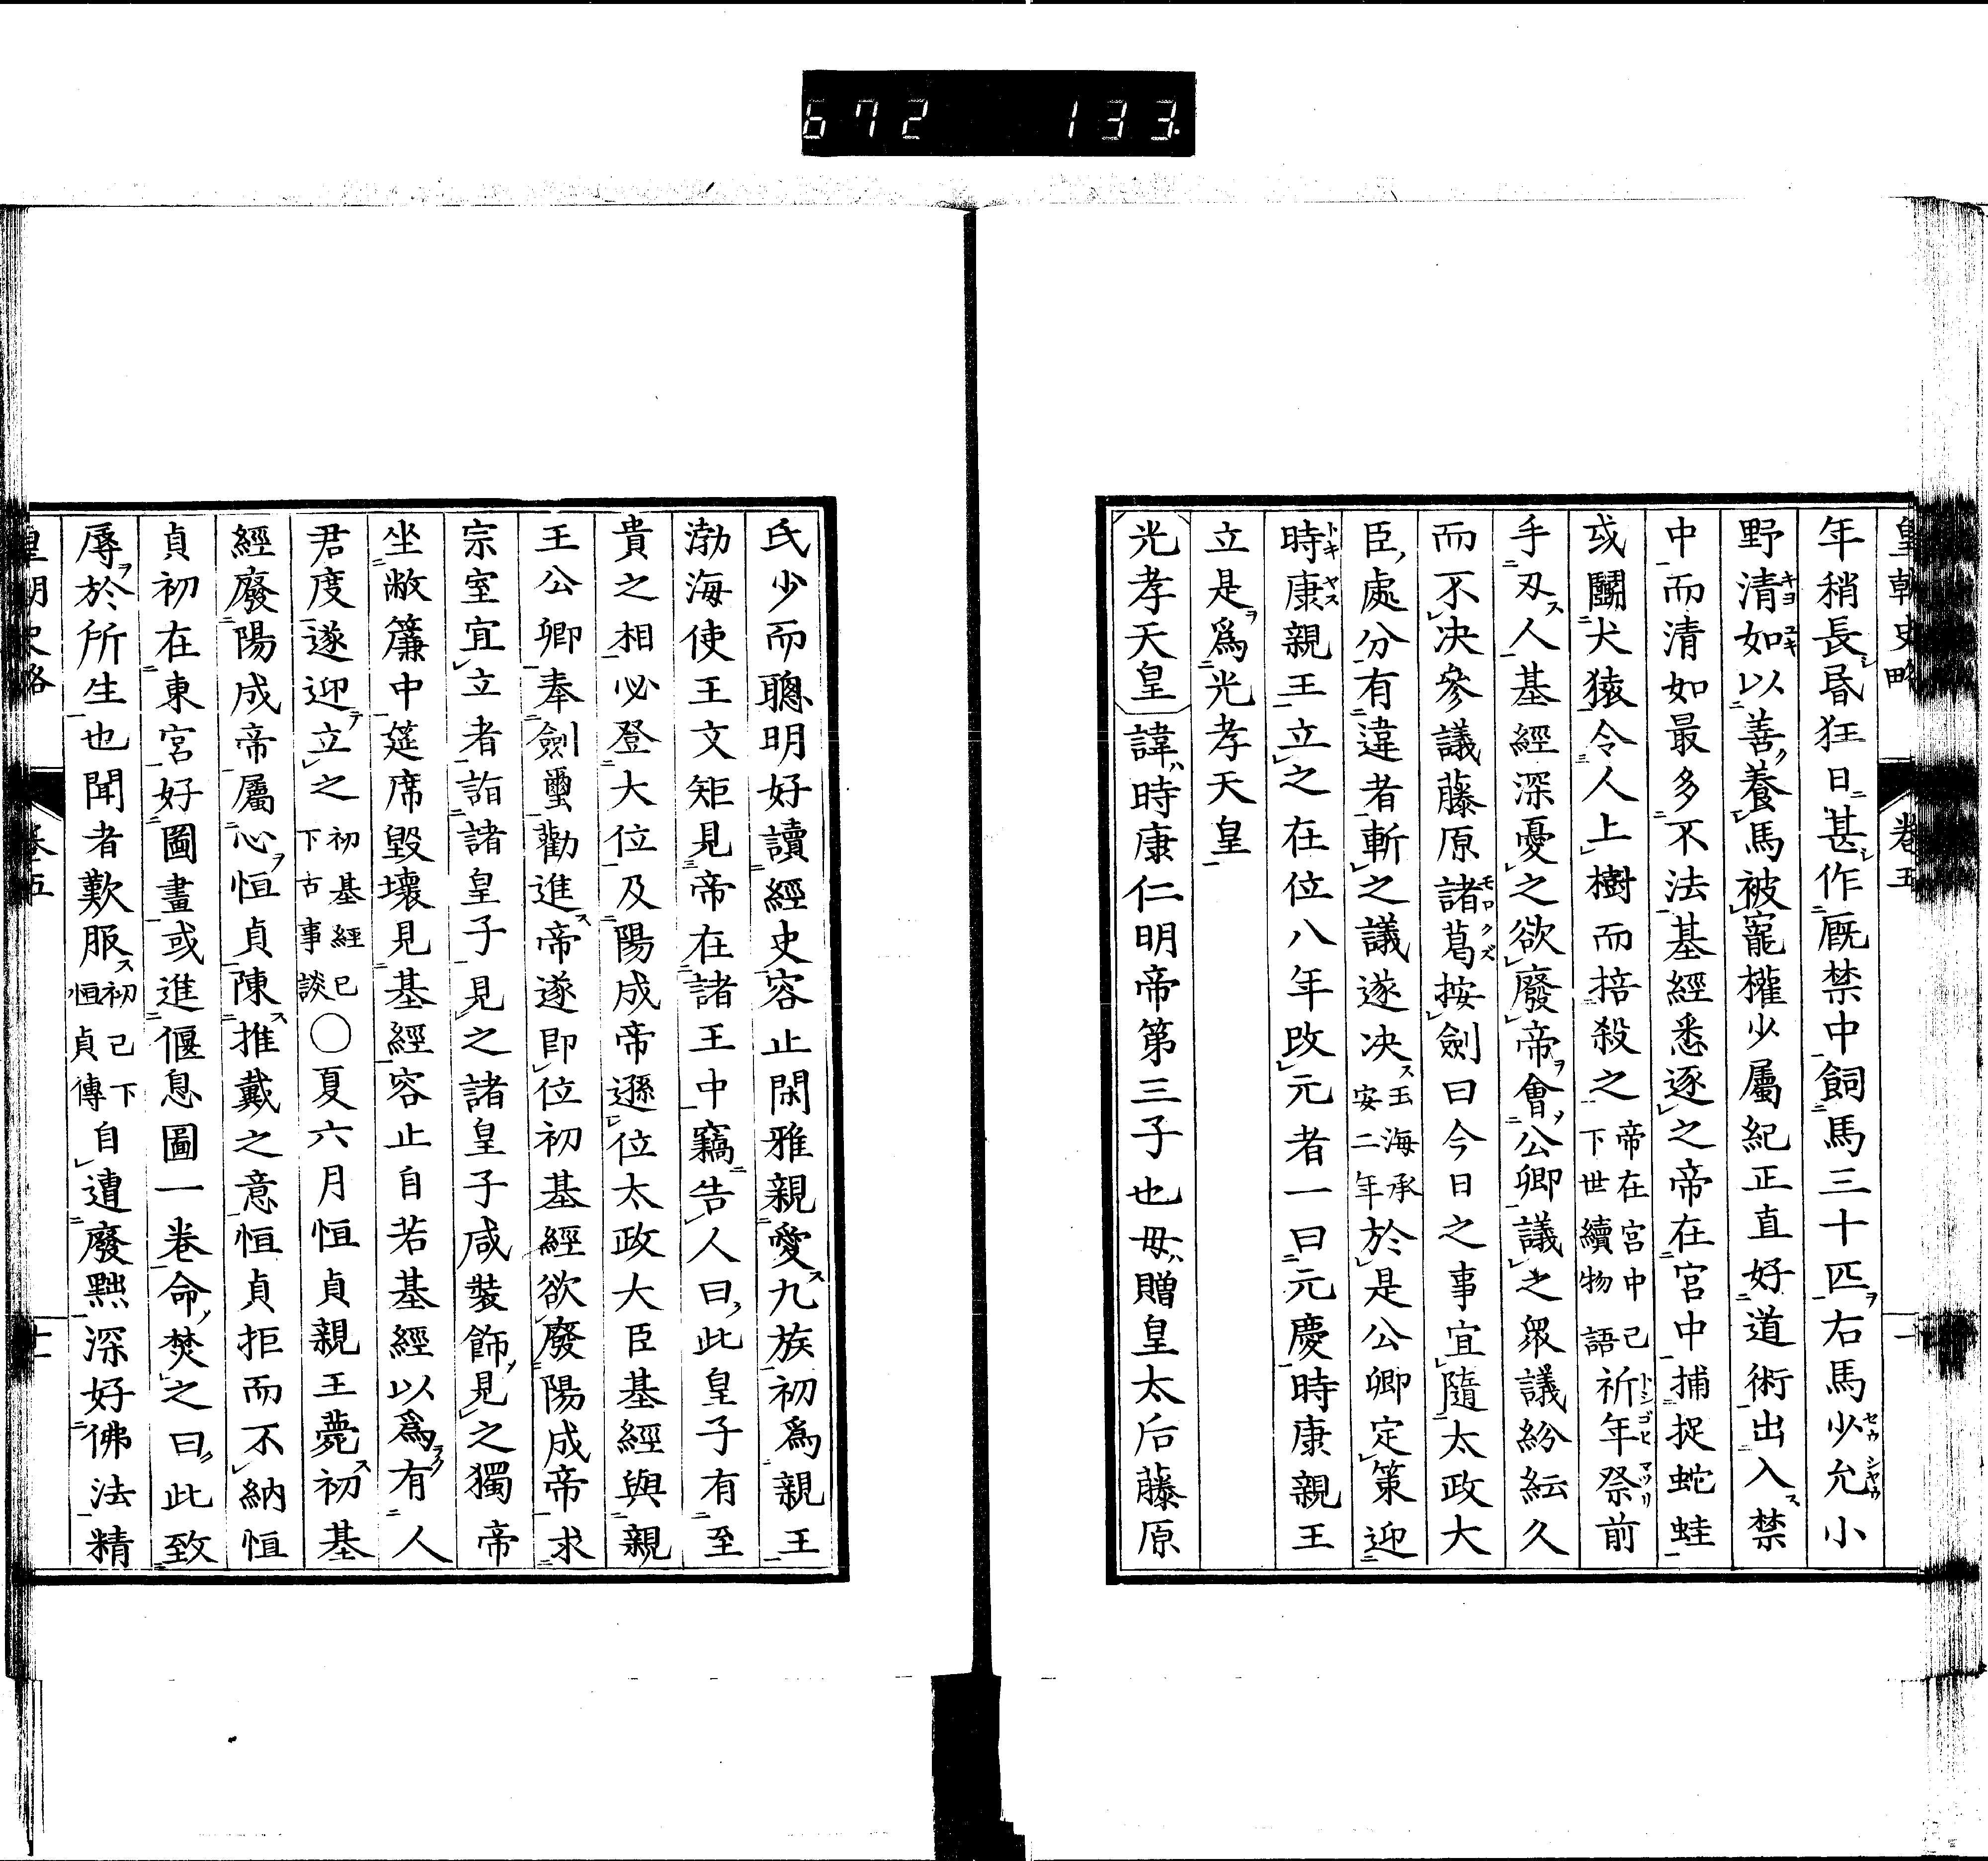 672 133
皇朝史略 卷五
年稍長昏狂日甚作厩禁中飼馬三十匹右馬少允小
野清如以善養馬被寵權少屬紀正直好道術出入禁
中而清如最多不法基經悉逐之帝在宮中捕捉蛇蛙
或鬭犬猿令人上樹而掊殺之帝在宮中已下世續物語祈年祭前
手刃人基經深憂之欲廢帝會公卿議之衆議紛紜久
而不決參議藤原諸葛按劍曰今日之事宜隨太政大
臣處分有違者斬之議遂決玉海承安二年於是公卿定策迎
時康親王立之在位八年改元者一曰元慶時康親王
立是爲光孝天皇
光孝天皇諱時康仁明帝第三子也母贈皇太后藤原
氏少而聰明好讀經史容止閑雅親愛九族初爲親王
渤海使王文矩見帝在諸王中竊告人曰此皇子有至
貴之相必登大位及陽成帝遜位太政大臣基經與親
王公卿奉劍璽勸進帝遂即位初基經欲廢陽成帝求
宗室宜立者詣諸皇子見之諸皇子咸裝飾見之獨帝
坐敝簾中筵席毀壞見基經容止自若基經以爲有人
君度遂迎立之初基經已下古事談○夏六月恒貞親王薨初基
經廢陽成帝屬心恒貞陳推戴之意恒貞拒而不納恒
貞初在東宮好圖畫或進偃息圖一卷命焚之曰此致
辱於所生也聞者歎服初已下恒貞傳自遭廢黜深好佛法精
皇朝史略 卷五